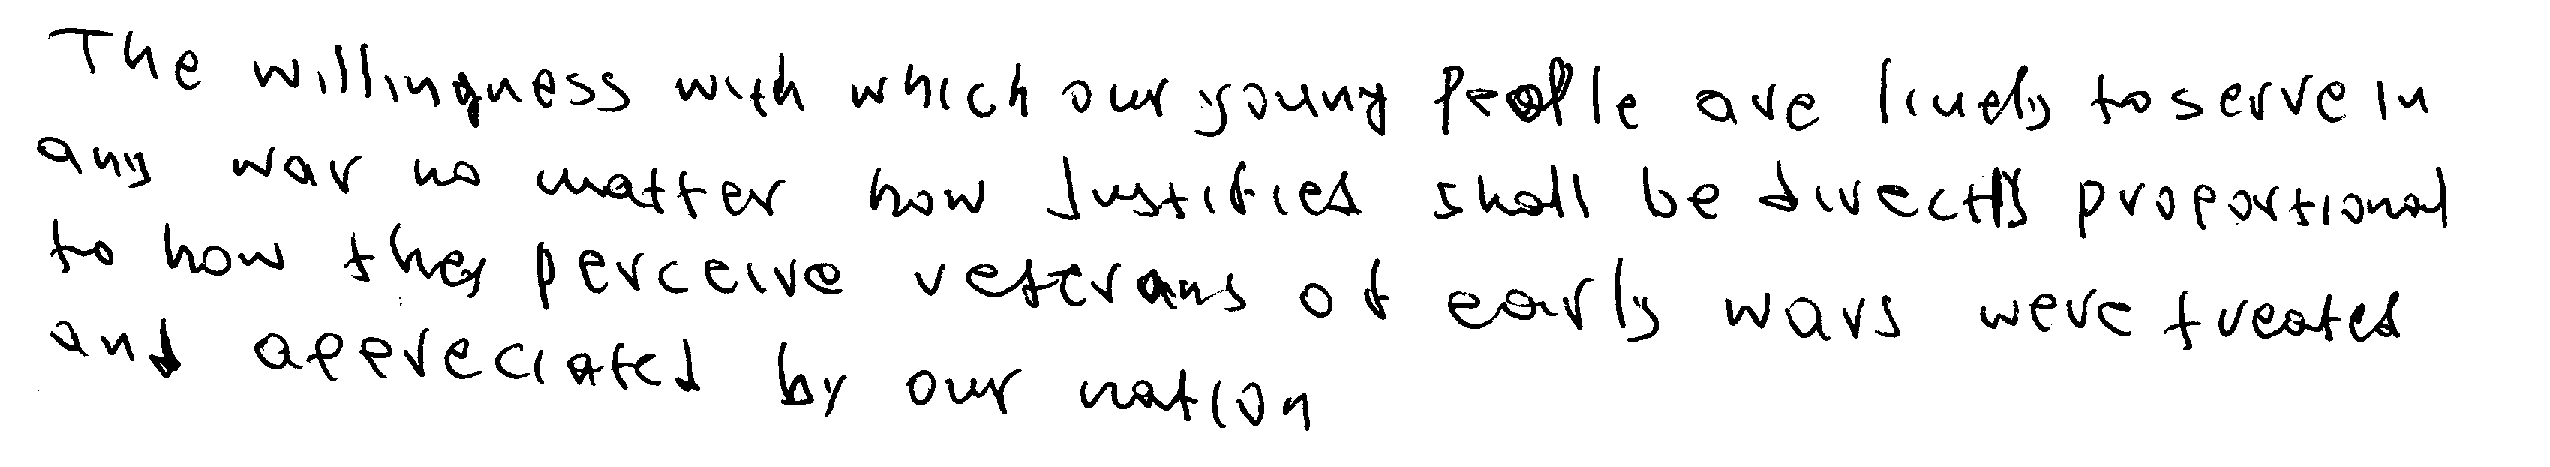 The willingness with which our young people are likely to serve in
any war no matter how Justified shall be directly proportional
to how they perceive veterans of early wars were treated
and appreciated by our nation